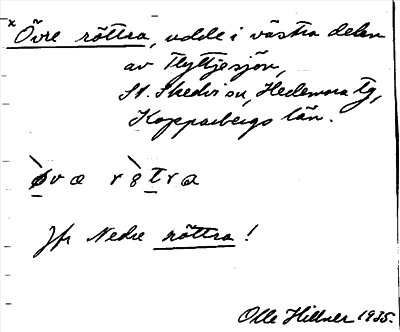 × Övre röttra, udde i västra delen
av Flyttjesjön,
St. Skedvi sn, Hedemora tg,
Kopparbergs län.
øvæ r8tra
Jfr Nedre röttra !
Olle Hillner 1935.